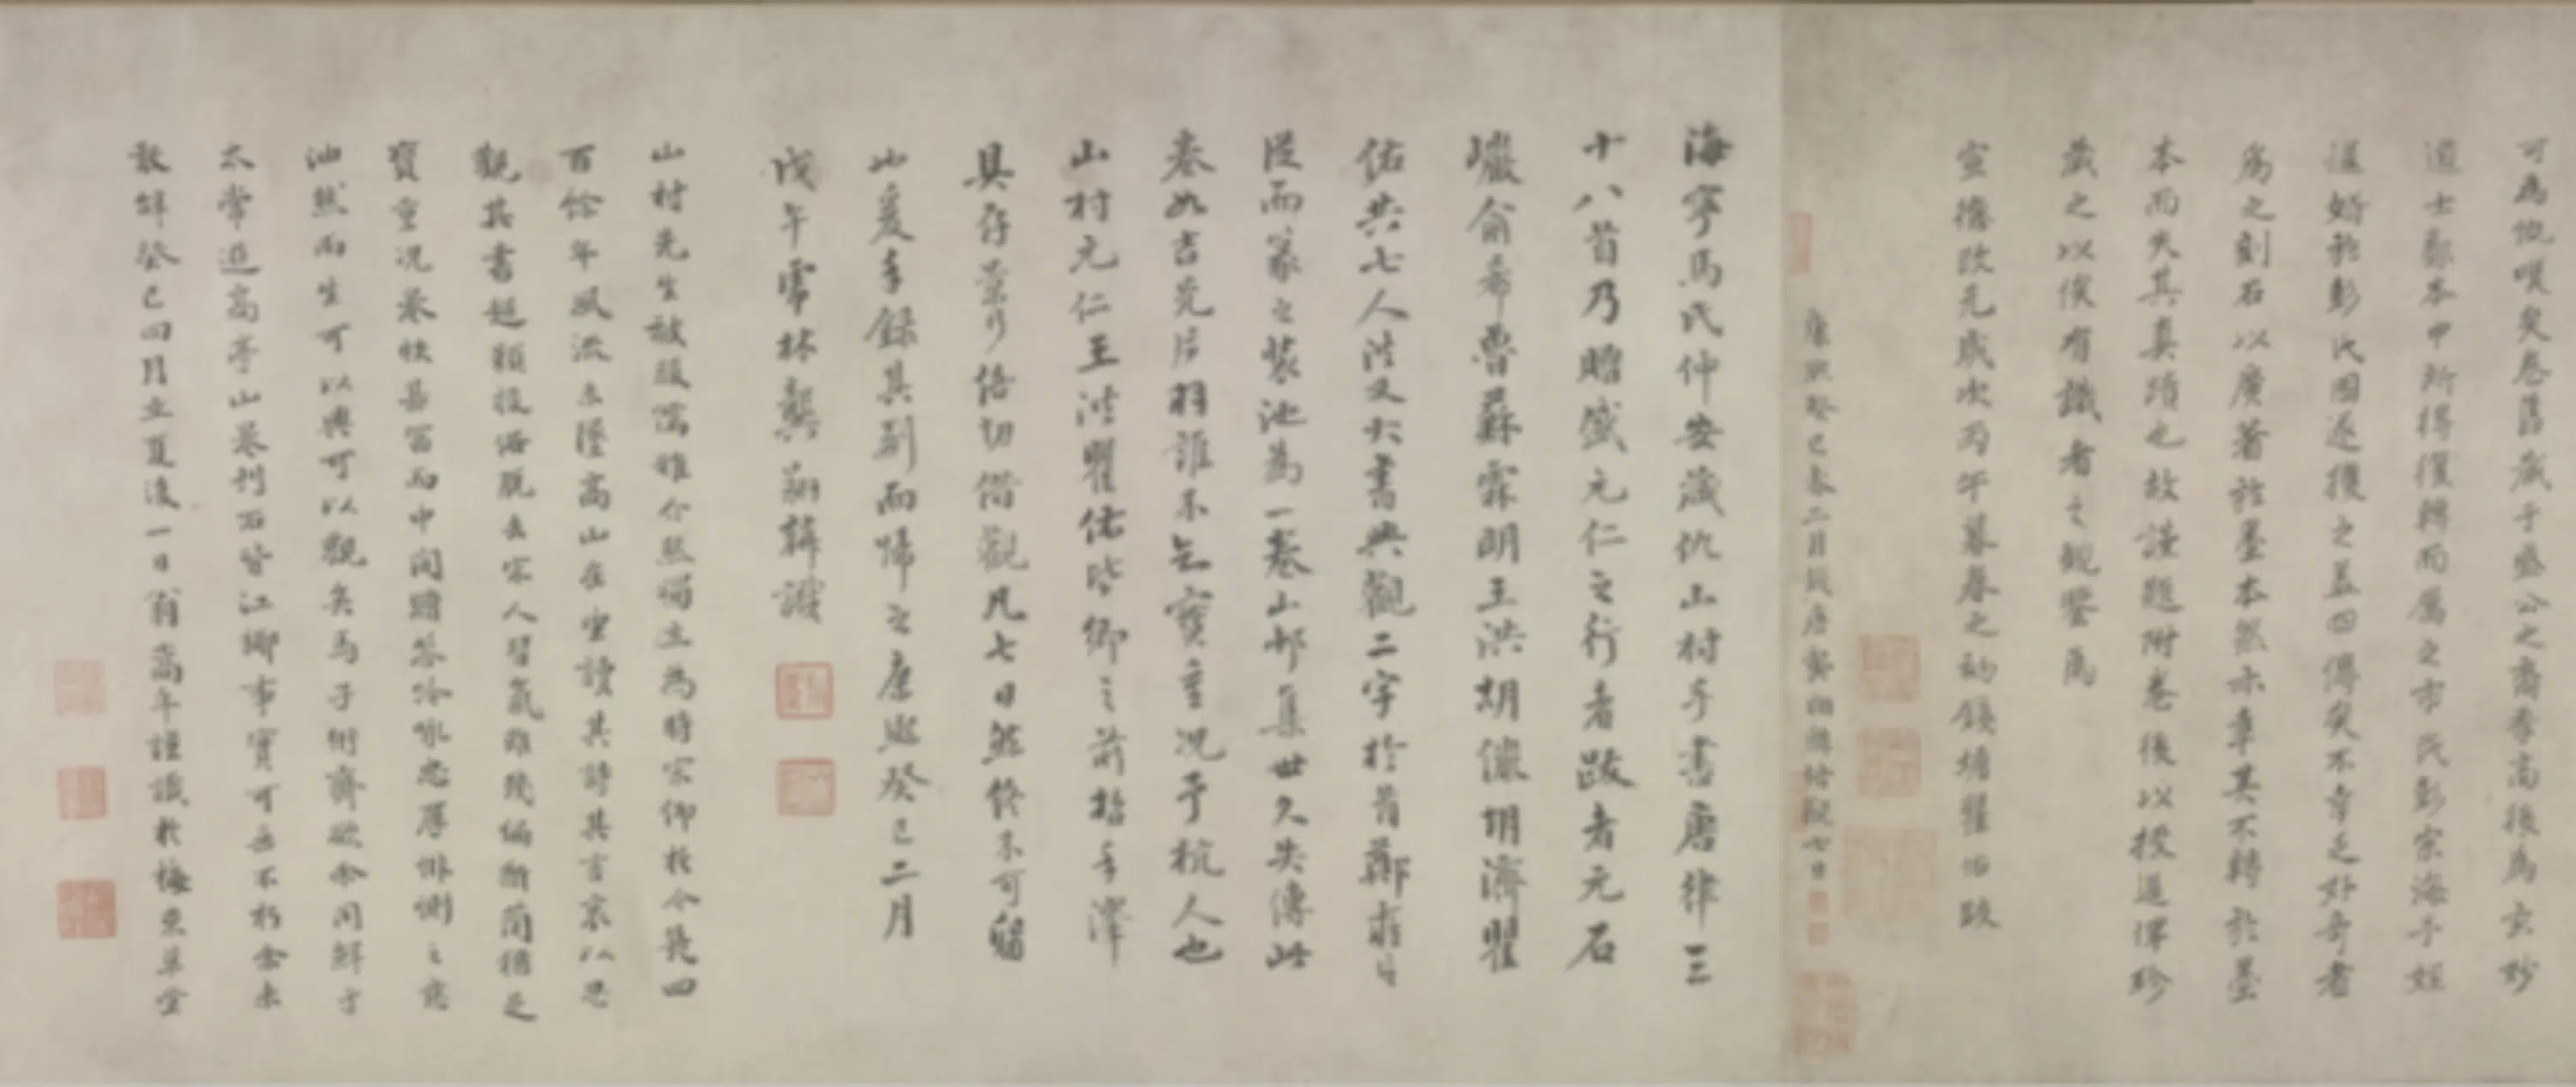 可為慨嘆矣卷舊藏于盛公之裔孝高後為玄妙
道士聶本中所得復轉而屬之市民彭宗海予姪
暹婿於彭氏因遂獲之蓋四傳矣不幸乏好奇者
為之刻石以廣著於墨本然亦幸其不轉於墨
本而失其真蹟也故謹題附卷後以授暹俾珍
藏之以俟有識者之觀覽焉
宣德改元歲次丙午暮春之初錢塘瞿佑跋
康熙癸巳春二月錢唐龔翔麟借觀七日
海寧馬氏仲安藏仇山村手書唐律三
十八首乃贈盛元仁之行者跋者元石
巖俞希魯蘇霖明王洪胡儼胡濟瞿
佑共七人洪又大書興觀二字於首鄭
從而篆之裝池為一卷山邨集世久失傳此
卷如吉光片羽誰不知寶重況予杭人也
山村元仁王洪瞿佑皆鄉之前哲手澤
具存景行倍切借觀凡七日然終不可留
也爰手錄其副而歸之康熙癸巳二月
戊午雩林龔翔麟識
山村先生故服儒雅介然獨立為時宗仰於今幾四
百餘年風流未墜高山在望讀其詩其言哀以思
觀其書超穎拔俗脫去宋人習氣雖殘編斷簡猶足
寶重況卷帙甚富而中間贈答泠泠忠厚悱惻之意
油然而生可以興可以觀矣馬子衎齋欲余同鮮于
太常追高亭山墓刊石皆江鄉事實可並不朽余未
敢辭癸巳四月立夏後一日翁嵩年謹識於梅東草堂